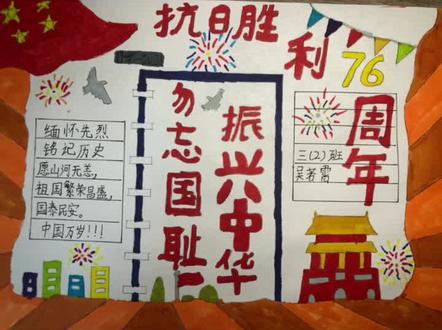 抗日胜利76周年
勿忘国耻
振兴中华
缅怀先烈
铭记历史
愿山河无恙，
祖国繁荣昌盛，
国泰民安。
中国万岁!!!
三(2)班
吴若雷